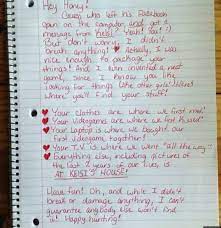 Hey Honey!
Guess who left his Facebook
open on the computer and got a
message from her? Yeah! You! :)
But don't worry, I didn't
break anything! ♥ Actually, I was
nice enough to package your
things! And I even invented a neat
game, since I know you like
looking for things (like other girls' )
where you'll find your stuff!
♥ Your clothes are where we first met!
♥ Your videogames are where we first kissed!
♥ Your laptop is where we bought our
first videogame together!
♥ Your T.V. is where we went "all the way"!
♥ Everything else, including pictures of
the last 2 years of our lives is
AT KEISI'S HOUSE!
Have fun! Oh, and while I didn't
break or damage anything, I can't
guarantee anybody else won't find
it! Happy hunting!